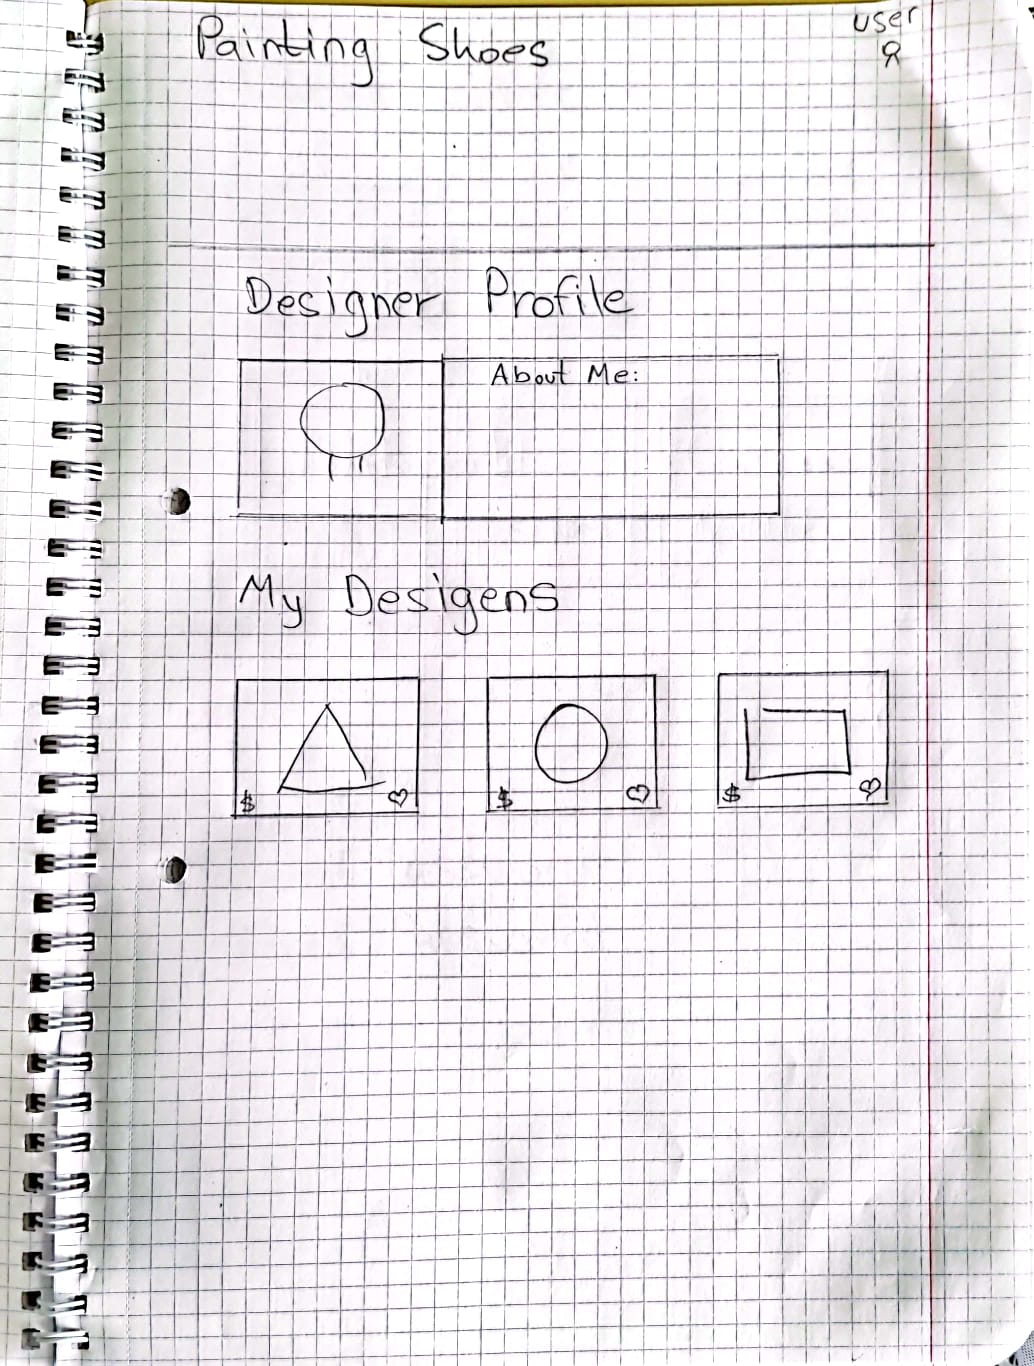 Painting Shoes
user
Designer Profile
About Me:
My Desigens
$
$
$